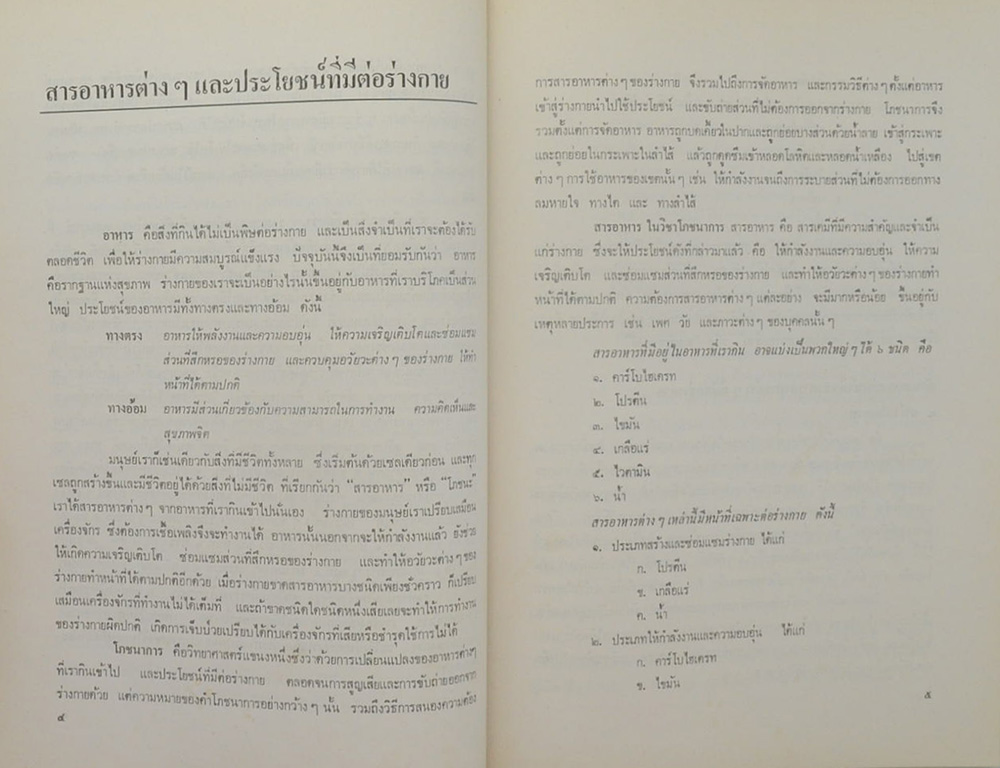 สารอาหารต่าง ๆ และประโยชน์ที่มีต่อร่างกาย
อาหาร คือสิ่งที่กินได้ไม่เป็นพิษต่อร่างกาย และเป็นสิ่งจำเป็นที่เราจะต้องได้รับ
ตลอดชีวิต เพื่อให้ร่างกายมีความสมบูรณ์แข็งแรง ปัจจุบันนี้จึงเป็นที่ยอมรับกันว่า อาหาร
คือรากฐานแห่งสุขภาพ ร่างกายของเราจะเป็นอย่างไรนั้นขึ้นอยู่กับอาหารที่เราบริโภคเป็นส่วน
ใหญ่ ประโยชน์ของอาหารมีทั้งทางตรงและทางอ้อม ดังนี้
ทางตรง อาหารให้พลังงานและความอบอุ่น ให้ความเจริญเติบโตและซ่อมแซม
ส่วนที่สึกหรอของร่างกาย และควบคุมอวัยวะต่าง ๆ ของร่างกาย ให้ทำ
หน้าที่ได้ตามปกติ
ทางอ้อม อาหารมีส่วนเกี่ยวข้องกับความสามารถในการทำงาน ความคิดเห็นและ
สุขภาพจิต
มนุษย์เราก็เช่นเดียวกับสิ่งที่มีชีวิตทั้งหลาย ซึ่งเริ่มต้นด้วยเซลเดียวก่อน และทุก
เซลถูกสร้างขึ้นและมีชีวิตอยู่ได้ด้วยสิ่งที่ไม่มีชีวิต ที่เรียกกันว่า "สารอาหาร" หรือ "โภชนะ"
เราได้สารอาหารต่าง ๆ จากอาหารที่เรากินเข้าไปนั่นเอง ร่างกายของมนุษย์เราเปรียบเสมือน
เครื่องจักร ซึ่งต้องการเชื้อเพลิงจึงจะทำงานได้ อาหารนั้นนอกจากจะให้กำลังงานแล้ว ยังช่วย
ให้เกิดความเจริญเติบโต ซ่อมแซมส่วนที่สึกหรอของร่างกาย และทำให้อวัยวะต่าง ๆ ของ
ร่างกายทำหน้าที่ได้ตามปกติอีกด้วย เมื่อร่างกายขาดสารอาหารบางชนิดเพียงชั่วคราว ก็เปรียบ
เสมือนเครื่องจักรที่ทำงานไม่ได้เต็มที่ และถ้าขาดชนิดใดชนิดหนึ่งเสียเลยจะทำให้การทำงาน
ของร่างกายผิดปกติ เกิดการเจ็บป่วยเปรียบได้กับเครื่องจักรที่เสียหรือชำรุดใช้การไม่ได้
โภชนาการ คือวิทยาศาสตร์แขนงหนึ่งซึ่งว่าด้วยการเปลี่ยนแปลงของอาหารต่างๆ
ที่เรากินเข้าไป และประโยชน์ที่มีต่อร่างกาย ตลอดจนการสูญเสียและการขับถ่ายออกจาก
ร่างกายด้วย แต่ความหมายของคำโภชนาการอย่างกว้าง ๆ นั้น รวมถึงวิธีการสนองความต้อง
๔
การสารอาหารต่าง ๆ ของร่างกาย จึงรวมไปถึงการจัดอาหาร และกรรมวิธีต่าง ๆ ตั้งแต่อาหาร
เข้าสู่ร่างกายนำไปใช้ประโยชน์ และขับถ่ายส่วนที่ไม่ต้องการออกจากร่างกาย โภชนาการจึง
รวมตั้งแต่การจัดอาหาร อาหารถูกบดเคี้ยวในปากและถูกย่อยบางส่วนด้วยน้ำลาย เข้าสู่กระเพาะ
และถูกย่อยในกระเพาะในลำไส้ แล้วถูกดูดซึมเข้าหลอดโลหิตและหลอดน้ำเหลือง ไปสู่เซต
ต่าง ๆ การใช้อาหารของเซตนั้น ๆ เช่น ให้กำลังงานจนถึงการระบายส่วนที่ไม่ต้องการออกทาง
ลมหายใจ ทางไต และ ทางลำไส้
สารอาหาร ในวิชาโภชนาการ สารอาหาร คือ สารเคมีที่มีความสำคัญและจำเป็น
แก่ร่างกาย ซึ่งจะให้ประโยชน์ดังที่กล่าวมาแล้ว คือ ให้กำลังงานและความอบอุ่น ให้ความ
เจริญเติบโต และซ่อมแซมส่วนที่สึกหรอของร่างกาย และทำให้อวัยวะต่าง ๆ ของร่างกายทำ
หน้าที่ได้ตามปกติ ความต้องการสารอาหารต่าง ๆ แต่ละอย่าง จะมีมากหรือน้อย ขึ้นอยู่กับ
เหตุหลายประการ เช่น เพศ วัย และภาวะต่าง ๆ ของบุคคลนั้น ๆ
สารอาหารที่มีอยู่ในอาหารที่เรากิน อาจแบ่งเป็นพวกใหญ่ ๆ ได้ ๖ ชนิด คือ
๑. คาร์โบไฮเดรท
๒. โปรตีน
๓. ไขมัน
๔. เกลือแร่
๕. ไวตามิน
๖. น้ำ
สารอาหารต่าง ๆ เหล่านี้มีหน้าที่เฉพาะต่อร่างกาย ดังนี้
๑. ประเภทสร้างและซ่อมแซมร่างกาย ได้แก่
ก. โปรตีน
ข. เกลือแร่
ค. น้ำ
๒. ประเภทให้กำลังงานและความอบอุ่น ได้แก่
ก. คาร์โบไฮเดรท
ข. ไขมัน
๕